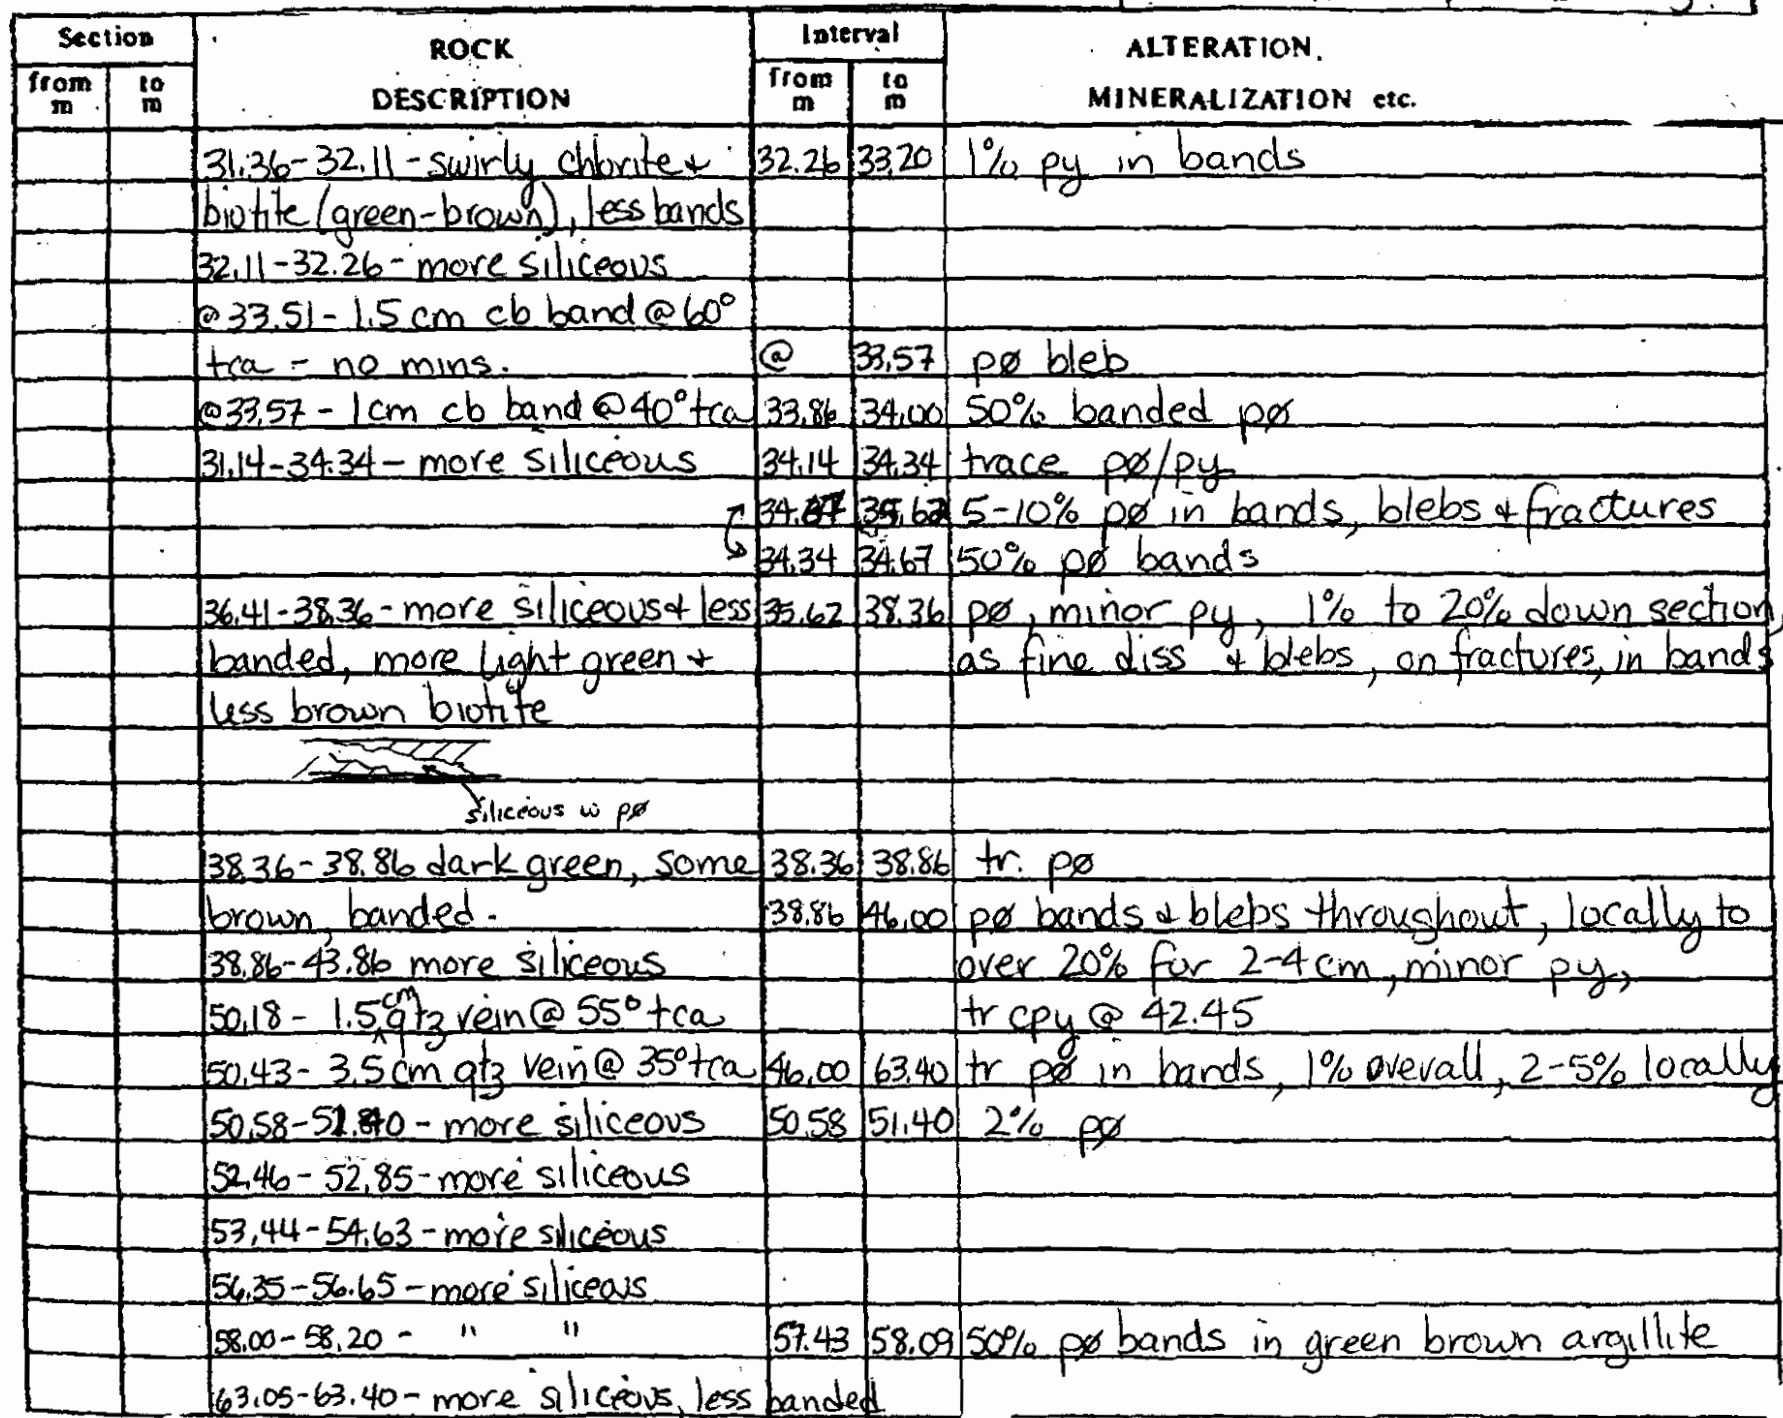 Section ROCK Interval ALTERATION,
from to DESCRIPTION from to MINERALIZATION etc.
m m m m
31.36-32.11 - swirly chlorite & 32.26 33.20 1% py in bands
biotite (green-brown), less bands
32.11-32.26 - more siliceous
@ 33.51 - 1.5 cm cb band @ 60°
tca - no mins. @ 33.57 pø bleb
@33.57 - 1cm cb band @ 40° tca 33.86 34.00 50% banded pø
31.14-34.34 - more siliceous 34.14 34.34 trace pø/py
34.67 35.62 5-10% pø in bands, blebs & fractures
34.34 34.67 50% pø bands
36.41-38.36 - more siliceous & less 35.62 38.36 pø, minor py, 1% to 20% down section,
banded, more light green & as fine diss & blebs, on fractures, in bands
less brown biotite
siliceous w pø
38.36-38.86 dark green, some 38.36 38.86 tr. pø
brown, banded. 38.86 46.00 pø bands & blebs throughout, locally to
38.86-43.86 more siliceous over 20% for 2-4 cm, minor py,
50.18 - 1.5 cm qtz vein @ 55° tca tr cpy @ 42.45
50.43 - 3.5 cm qtz vein @ 35° tca 46.00 63.40 tr pø in bands, 1% overall, 2-5% locally
50.58-51.40 - more siliceous 50.58 51.40 2% pø
52.46 - 52.85 - more siliceous
53.44 - 54.63 - more siliceous
56.35 - 56.65 - more siliceous
58.00 - 58.20 - " " 57.43 58.09 50% pø bands in green brown argillite
63.05-63.40 - more siliceous, less banded